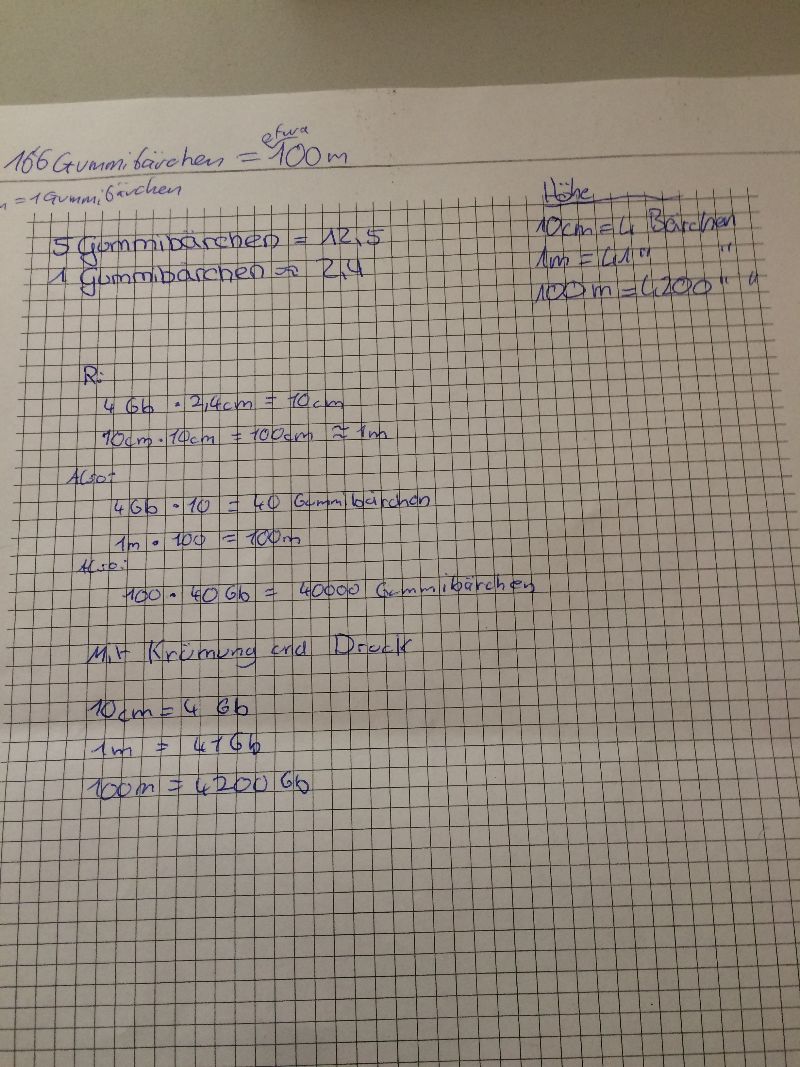 166 Gummibärchen = etwa 100m
= 1 Gummibärchen
5 Gummibärchen = 12,5
1 Gummibärchen ≈ 2,4
Höhe
10cm = 4 Bärchen
1m = 41 " "
100m = 4200 " "
R:
4 Gb · 2,4cm = 10cm
10cm · 10cm = 100cm ≈ 1m
Also:
4Gb · 10 = 40 Gummibärchen
1m · 100 = 100m
Also:
100 · 40 Gb = 40000 Gummibärchen
Mit Krümung und Druck
10cm = 4 Gb
1m = 41 Gb
100m = 4200 Gb